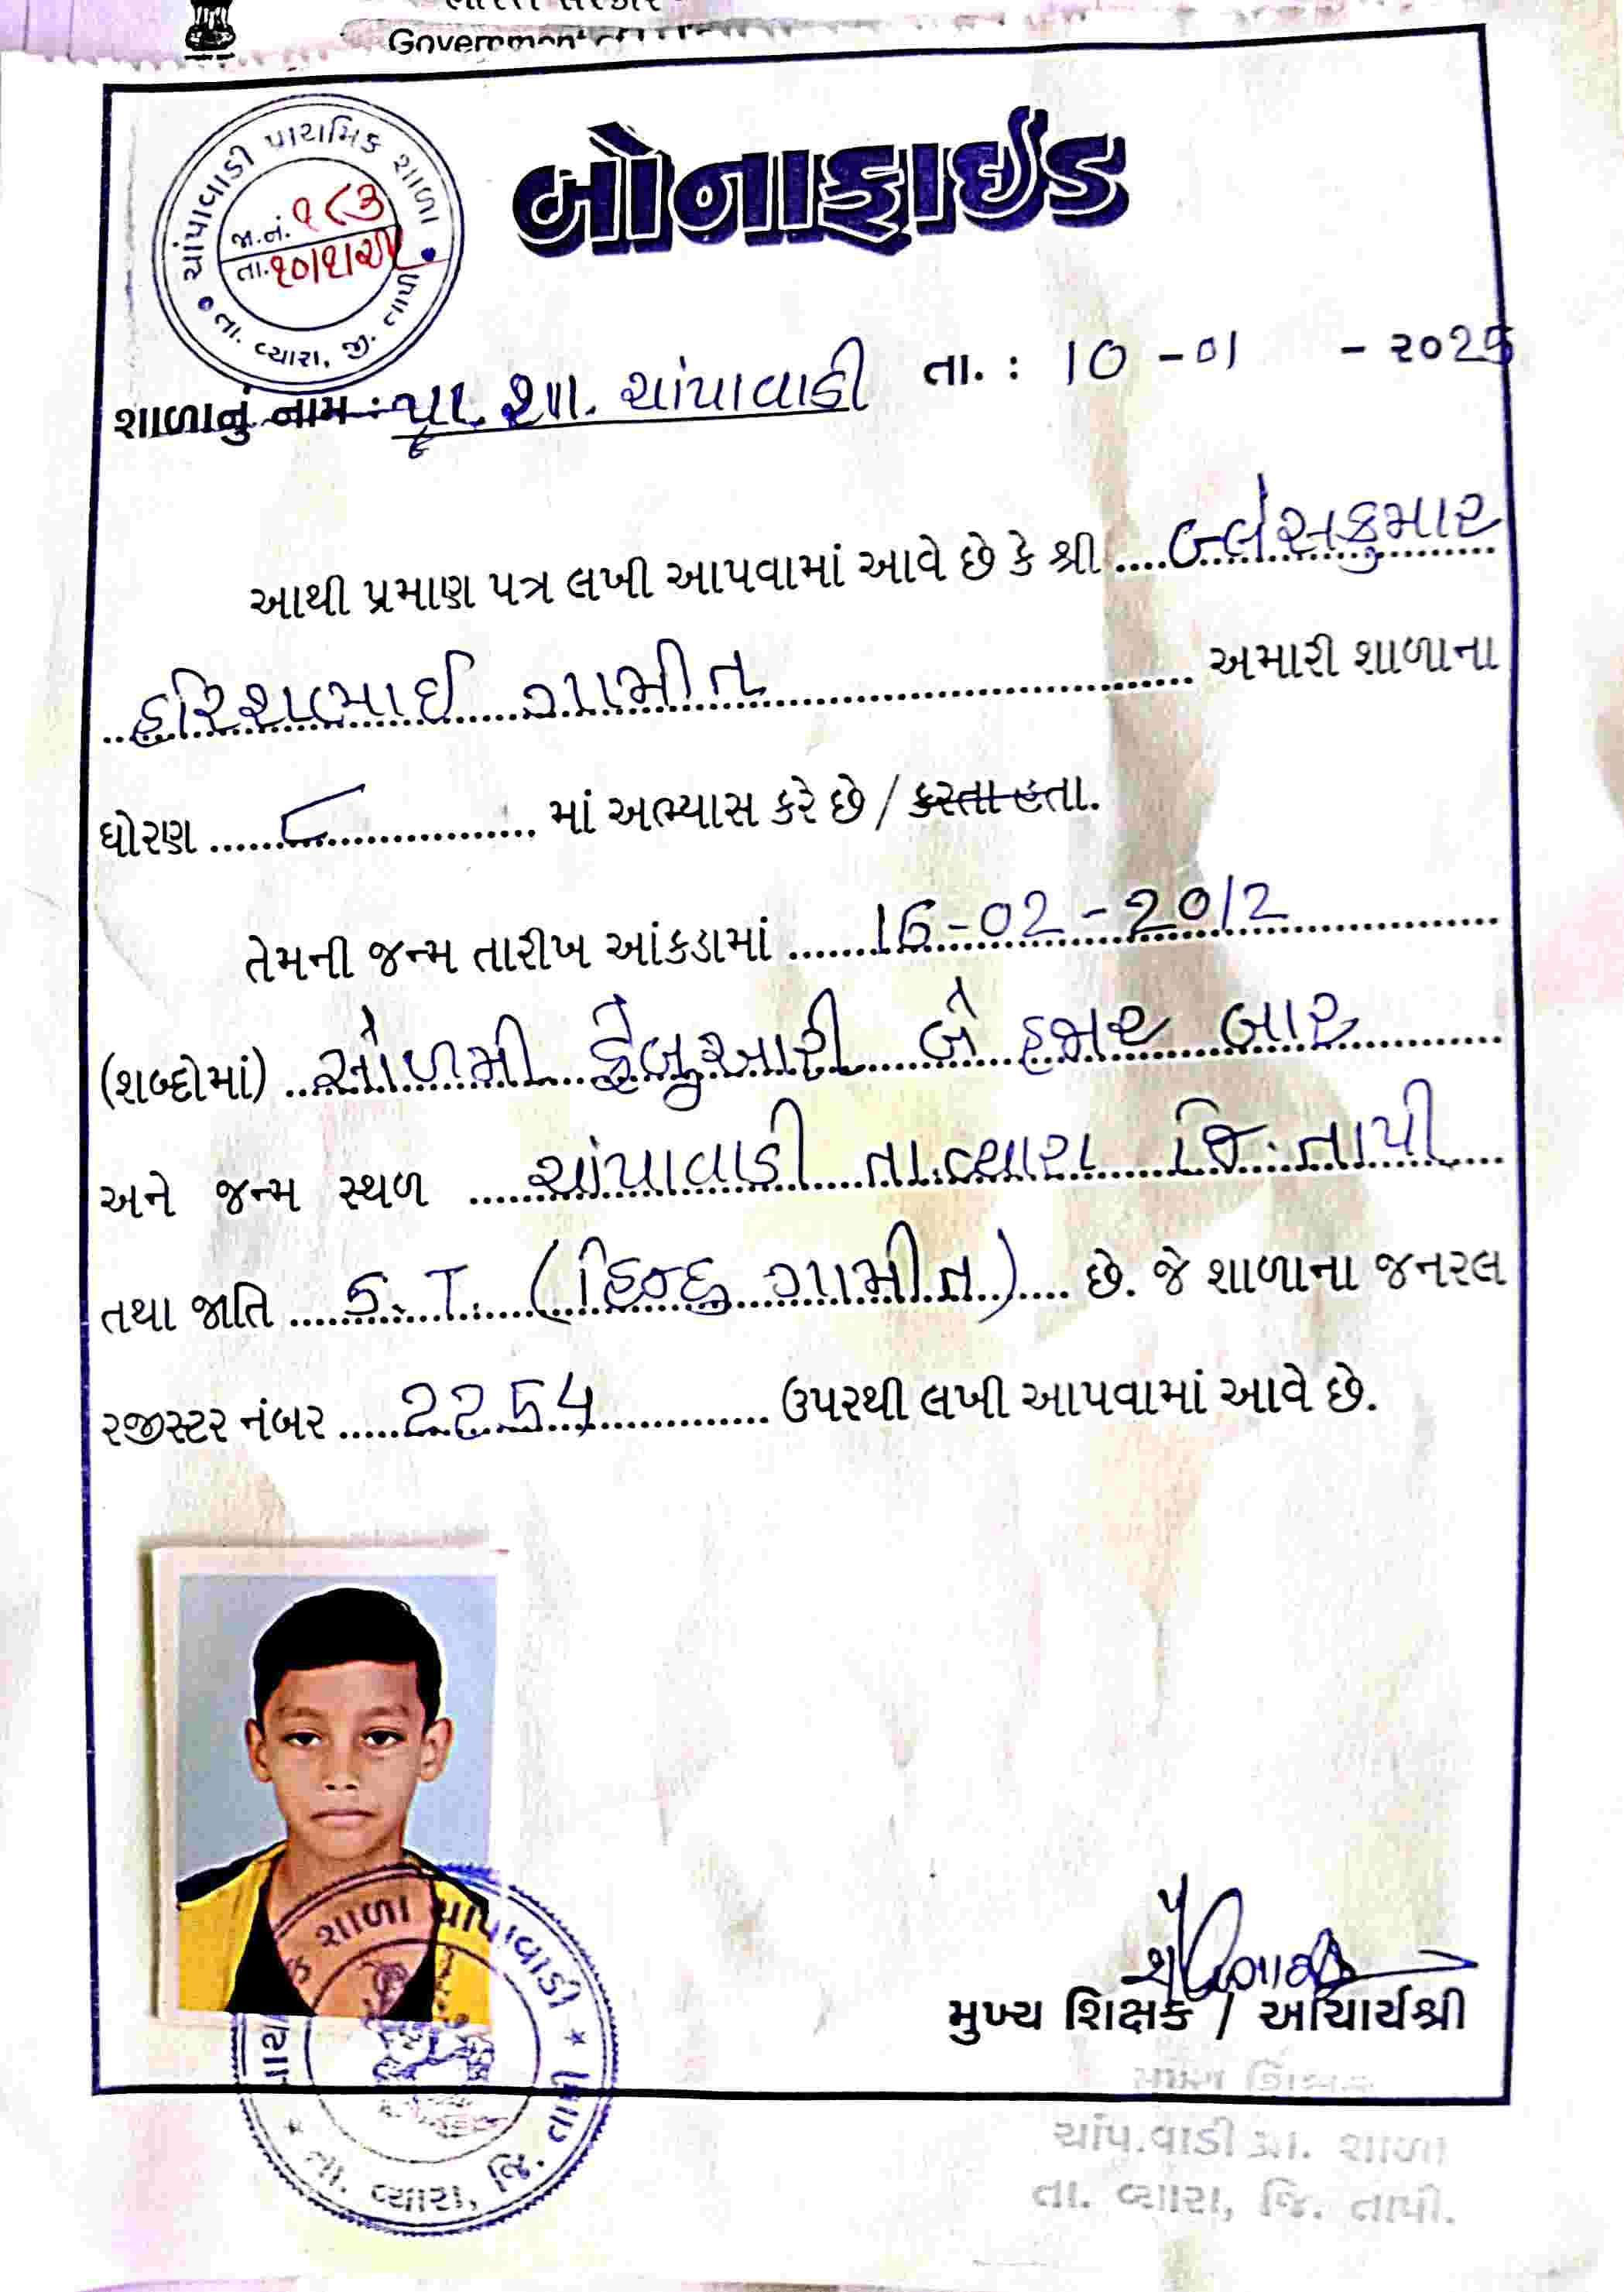 ભારત સરકાર
Government
ચાંપાવાડી પ્રાથમિક શાળા
જા.નં. ૧૮૩
તા. ૧૦/૧/૨૫
તા. વ્યારા, જી. તાપી
બોનાફાઈડ
તા. : 10 - 01 - ૨૦25
શાળાનું નામ : પ્રા. શા. ચાંપાવાડી
આથી પ્રમાણ પત્ર લખી આપવામાં આવે છે કે શ્રી બ્લેસકુમાર
હરિશભાઈ ગામીત અમારી શાળાના
ધોરણ ૮ માં અભ્યાસ કરે છે / કરતા હતા.
તેમની જન્મ તારીખ આંકડામાં 16-02-2012
(શબ્દોમાં) સોળમી ફેબ્રુઆરી બે હજાર બાર
અને જન્મ સ્થળ ચાંપાવાડી તા.વ્યારા જિ.તાપી
તથા જાતિ S.T. (હિન્દુ ગામીત) છે. જે શાળાના જનરલ
રજીસ્ટર નંબર 2254 ઉપરથી લખી આપવામાં આવે છે.
શાળા ચાંપાવાડી
તા. વ્યારા, જિ. તાપી
મુખ્ય શિક્ષક / આચાર્યશ્રી
મુખ્ય શિક્ષક
ચાંપાવાડી પ્રા. શાળા
તા. વ્યારા, જિ. તાપી.